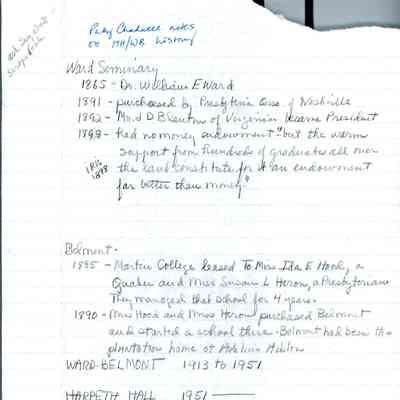 Patsy Chadwell notes
on HH/WB history
Ward Seminary
1865 - Dr. William E Ward
1891 - purchased by Presbyterian of Nashville
1892 - Mr. J D Blanton of Virginia became President
1898 - had no money endowment "but the warm
support from hundreds of graduates all over
the land constitute for it an endowment
far better than money"
IRIS
1898
Belmont -
1885 - Martin College leased to Miss Ida E Hood, a
Quaker and Miss Susan L Heron, a Presbyterian
They managed that school for 4 years.
1890 - Miss Hood and Miss Heron purchased Belmont
and started a school there - Belmont had been the
plantation home of Adelicia Acklen
WARD-BELMONT 1913 to 1951
HARPETH HALL 1951 -